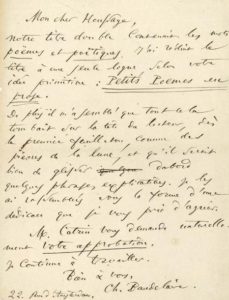 Mon cher Houssaye,
Notre titre double contenant les mots
poèmes et poétiques, j'ai réduit le
titre à une seule ligne selon votre
idée primitive : Petits Poèmes en
prose.
De plus il m'a semblé que tout cela
tombait sur la tête du lecteur, dès
le premier feuilleton, comme des
pierres de la lune, et qu'il serait
bon de glisser d'abord
quelques phrases explicatives. Je les
ai rassemblées sous la forme d'une
dédicace que je vous prie d'agréer.
M. Cohen vous demandera naturelle-
ment votre approbation.
Je continue à travailler.
Bien à vous,
Ch. Baudelaire
22. rue d'Amsterdam.